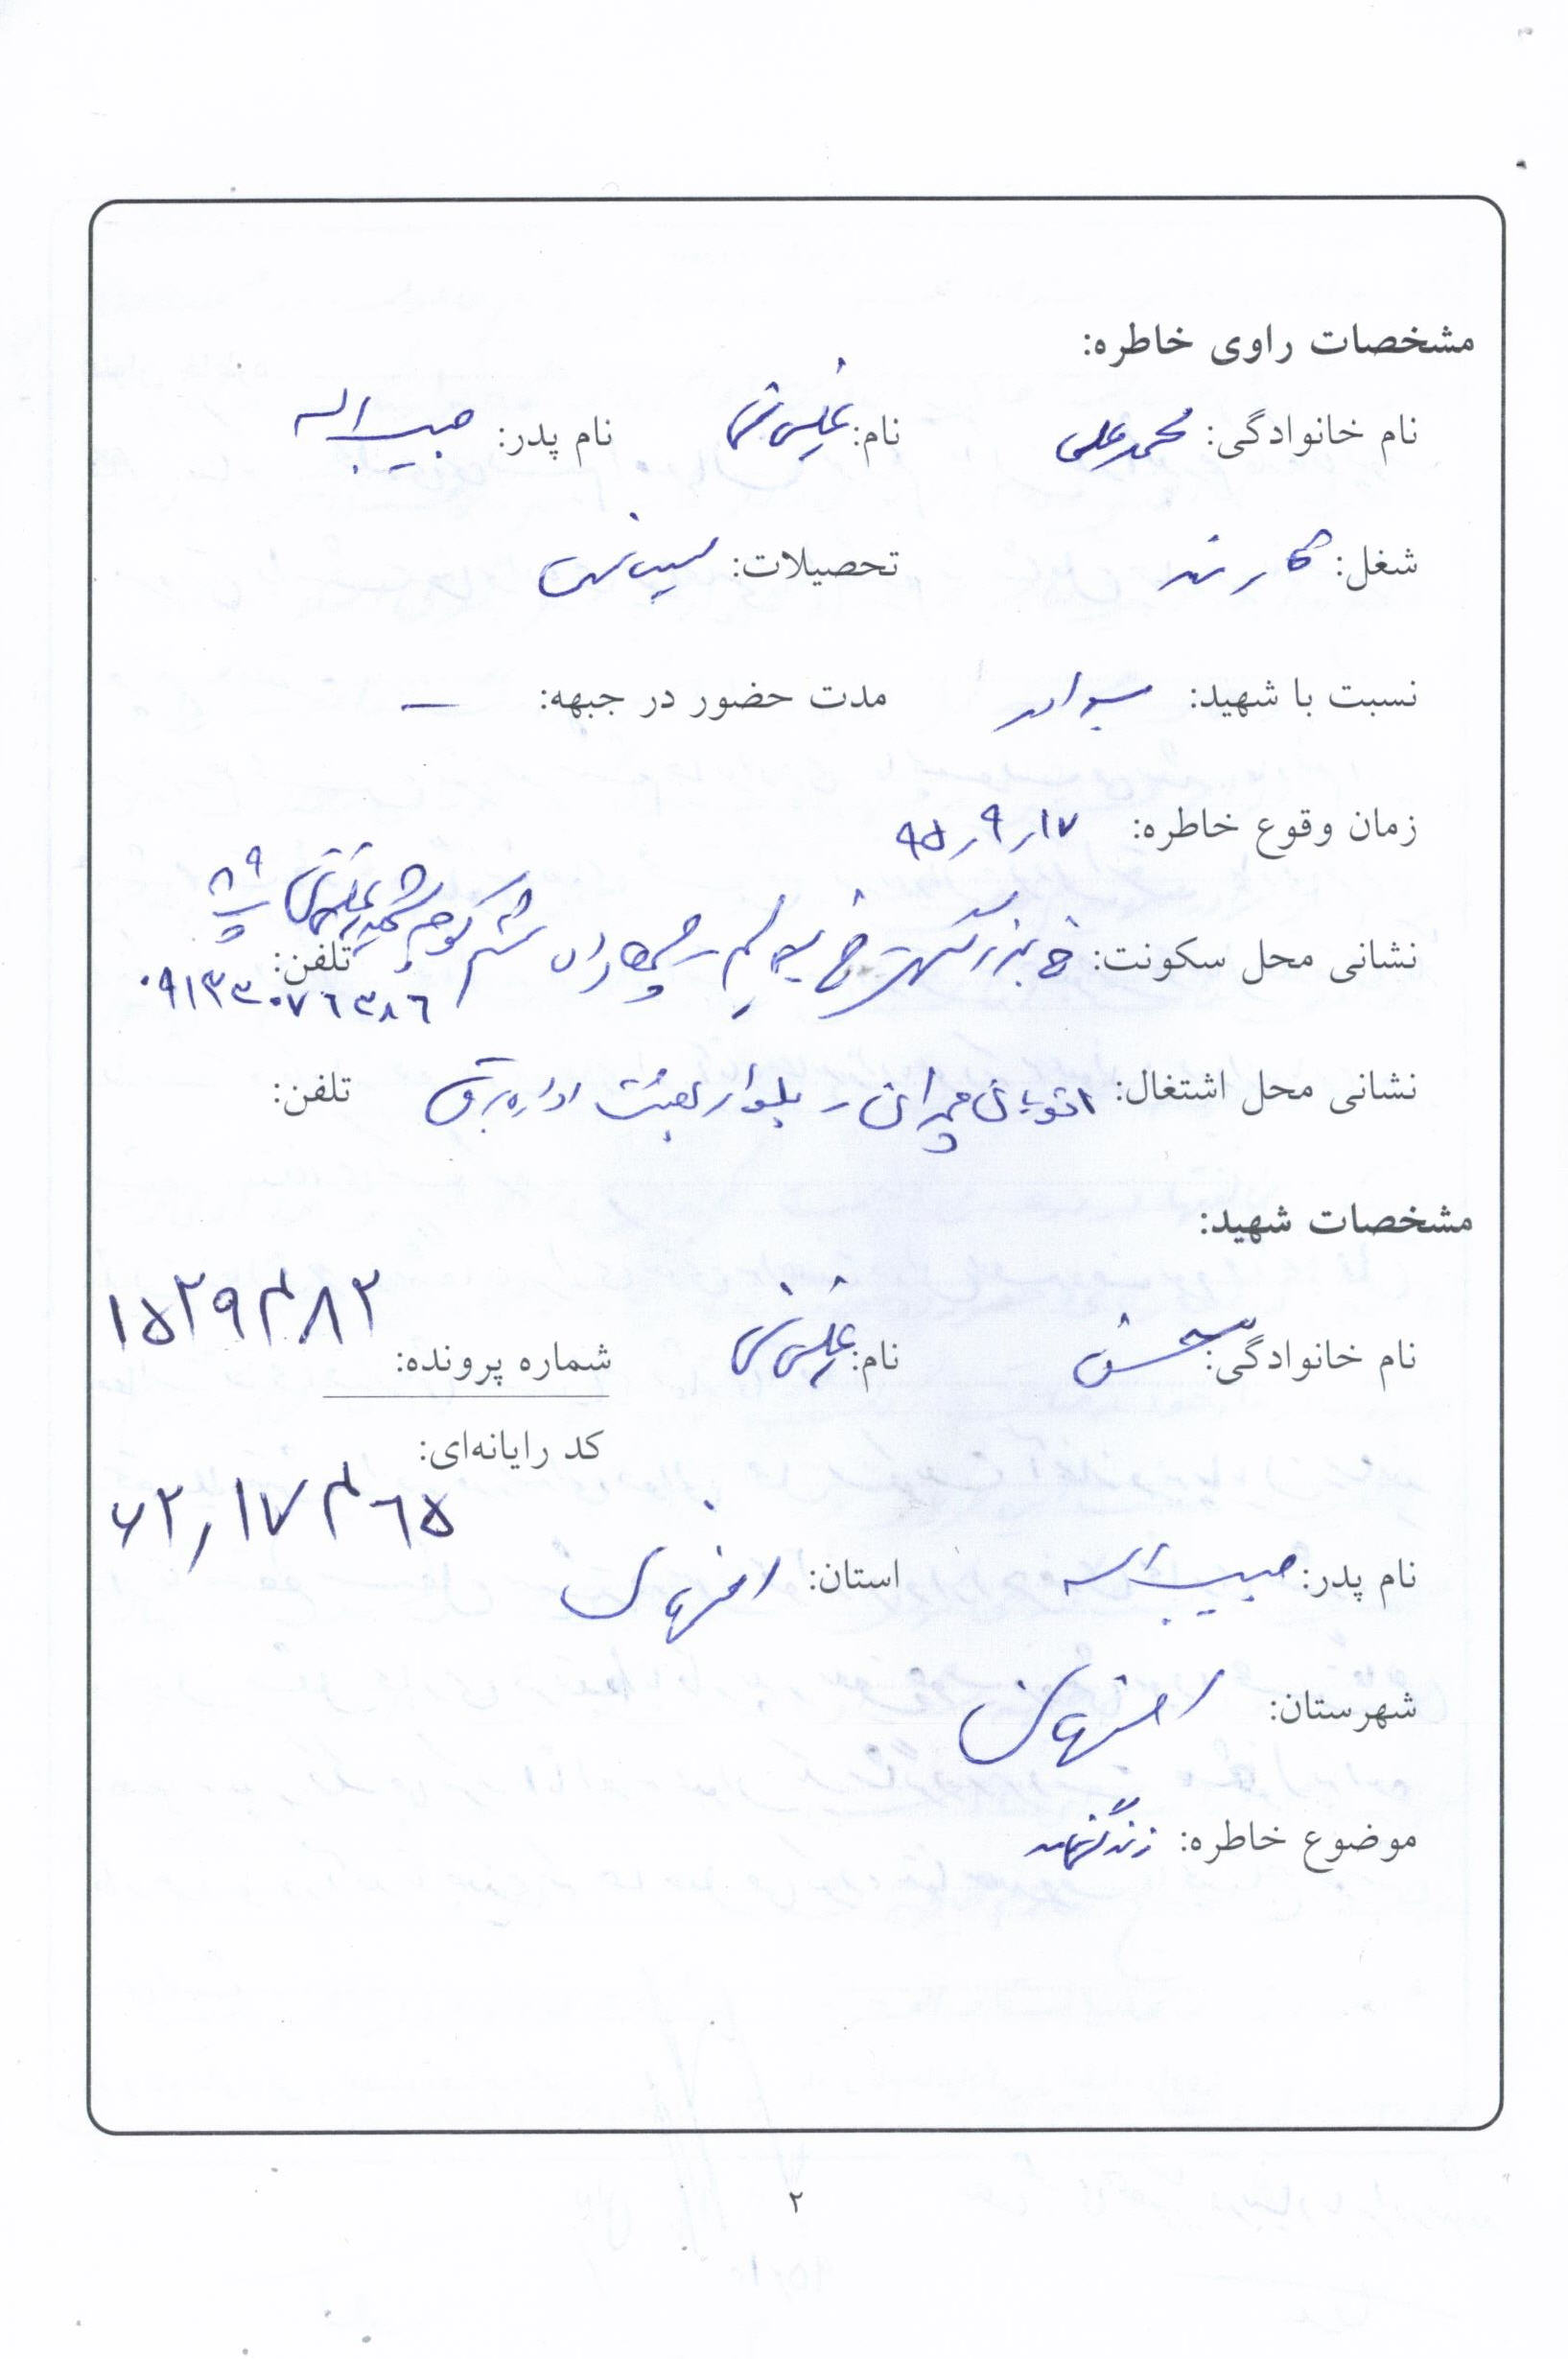 مشخصات راوی خاطره:
نام خانوادگی: محمدعلی نام: نام پدر: حبیب اله
شغل: کارمند تحصیلات: لیسانس
نسبت با شهید: برادر مدت حضور در جبهه: —
زمان وقوع خاطره: ۹۵٫۹٫۱۷
نشانی محل سکونت: خ بزرگمهر خ کوچه شهید پ ۸۹ تلفن: ۰۹۱۳۳۰۷۶۳۸۶
نشانی محل اشتغال: اتوبان چمران - بلوار بعثت اداره برق تلفن:
مشخصات شهید:
نام خانوادگی: محسن نام: شماره پرونده: ۱۵۲۹۳۸۲
کد رایانه‌ای: ۶۲٫۱۷۳۶۵
نام پدر: حبیب اله استان: اصفهان
شهرستان: اصفهان
موضوع خاطره: زندگینامه
۲